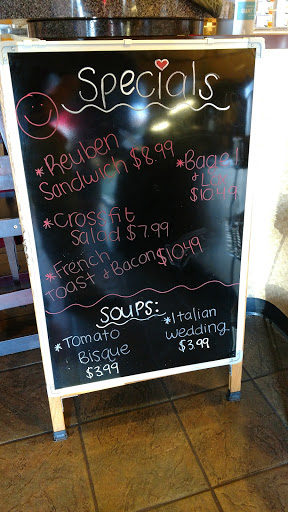 Specials
*Reuben
Sandwich $8.99
*Bagel
& Lox
$10.49
*Crossfit
Salad $7.99
*French
Toast & Bacon $10.49
SOUPS:
*Tomato
Bisque
$3.99
*Italian
wedding
$3.99